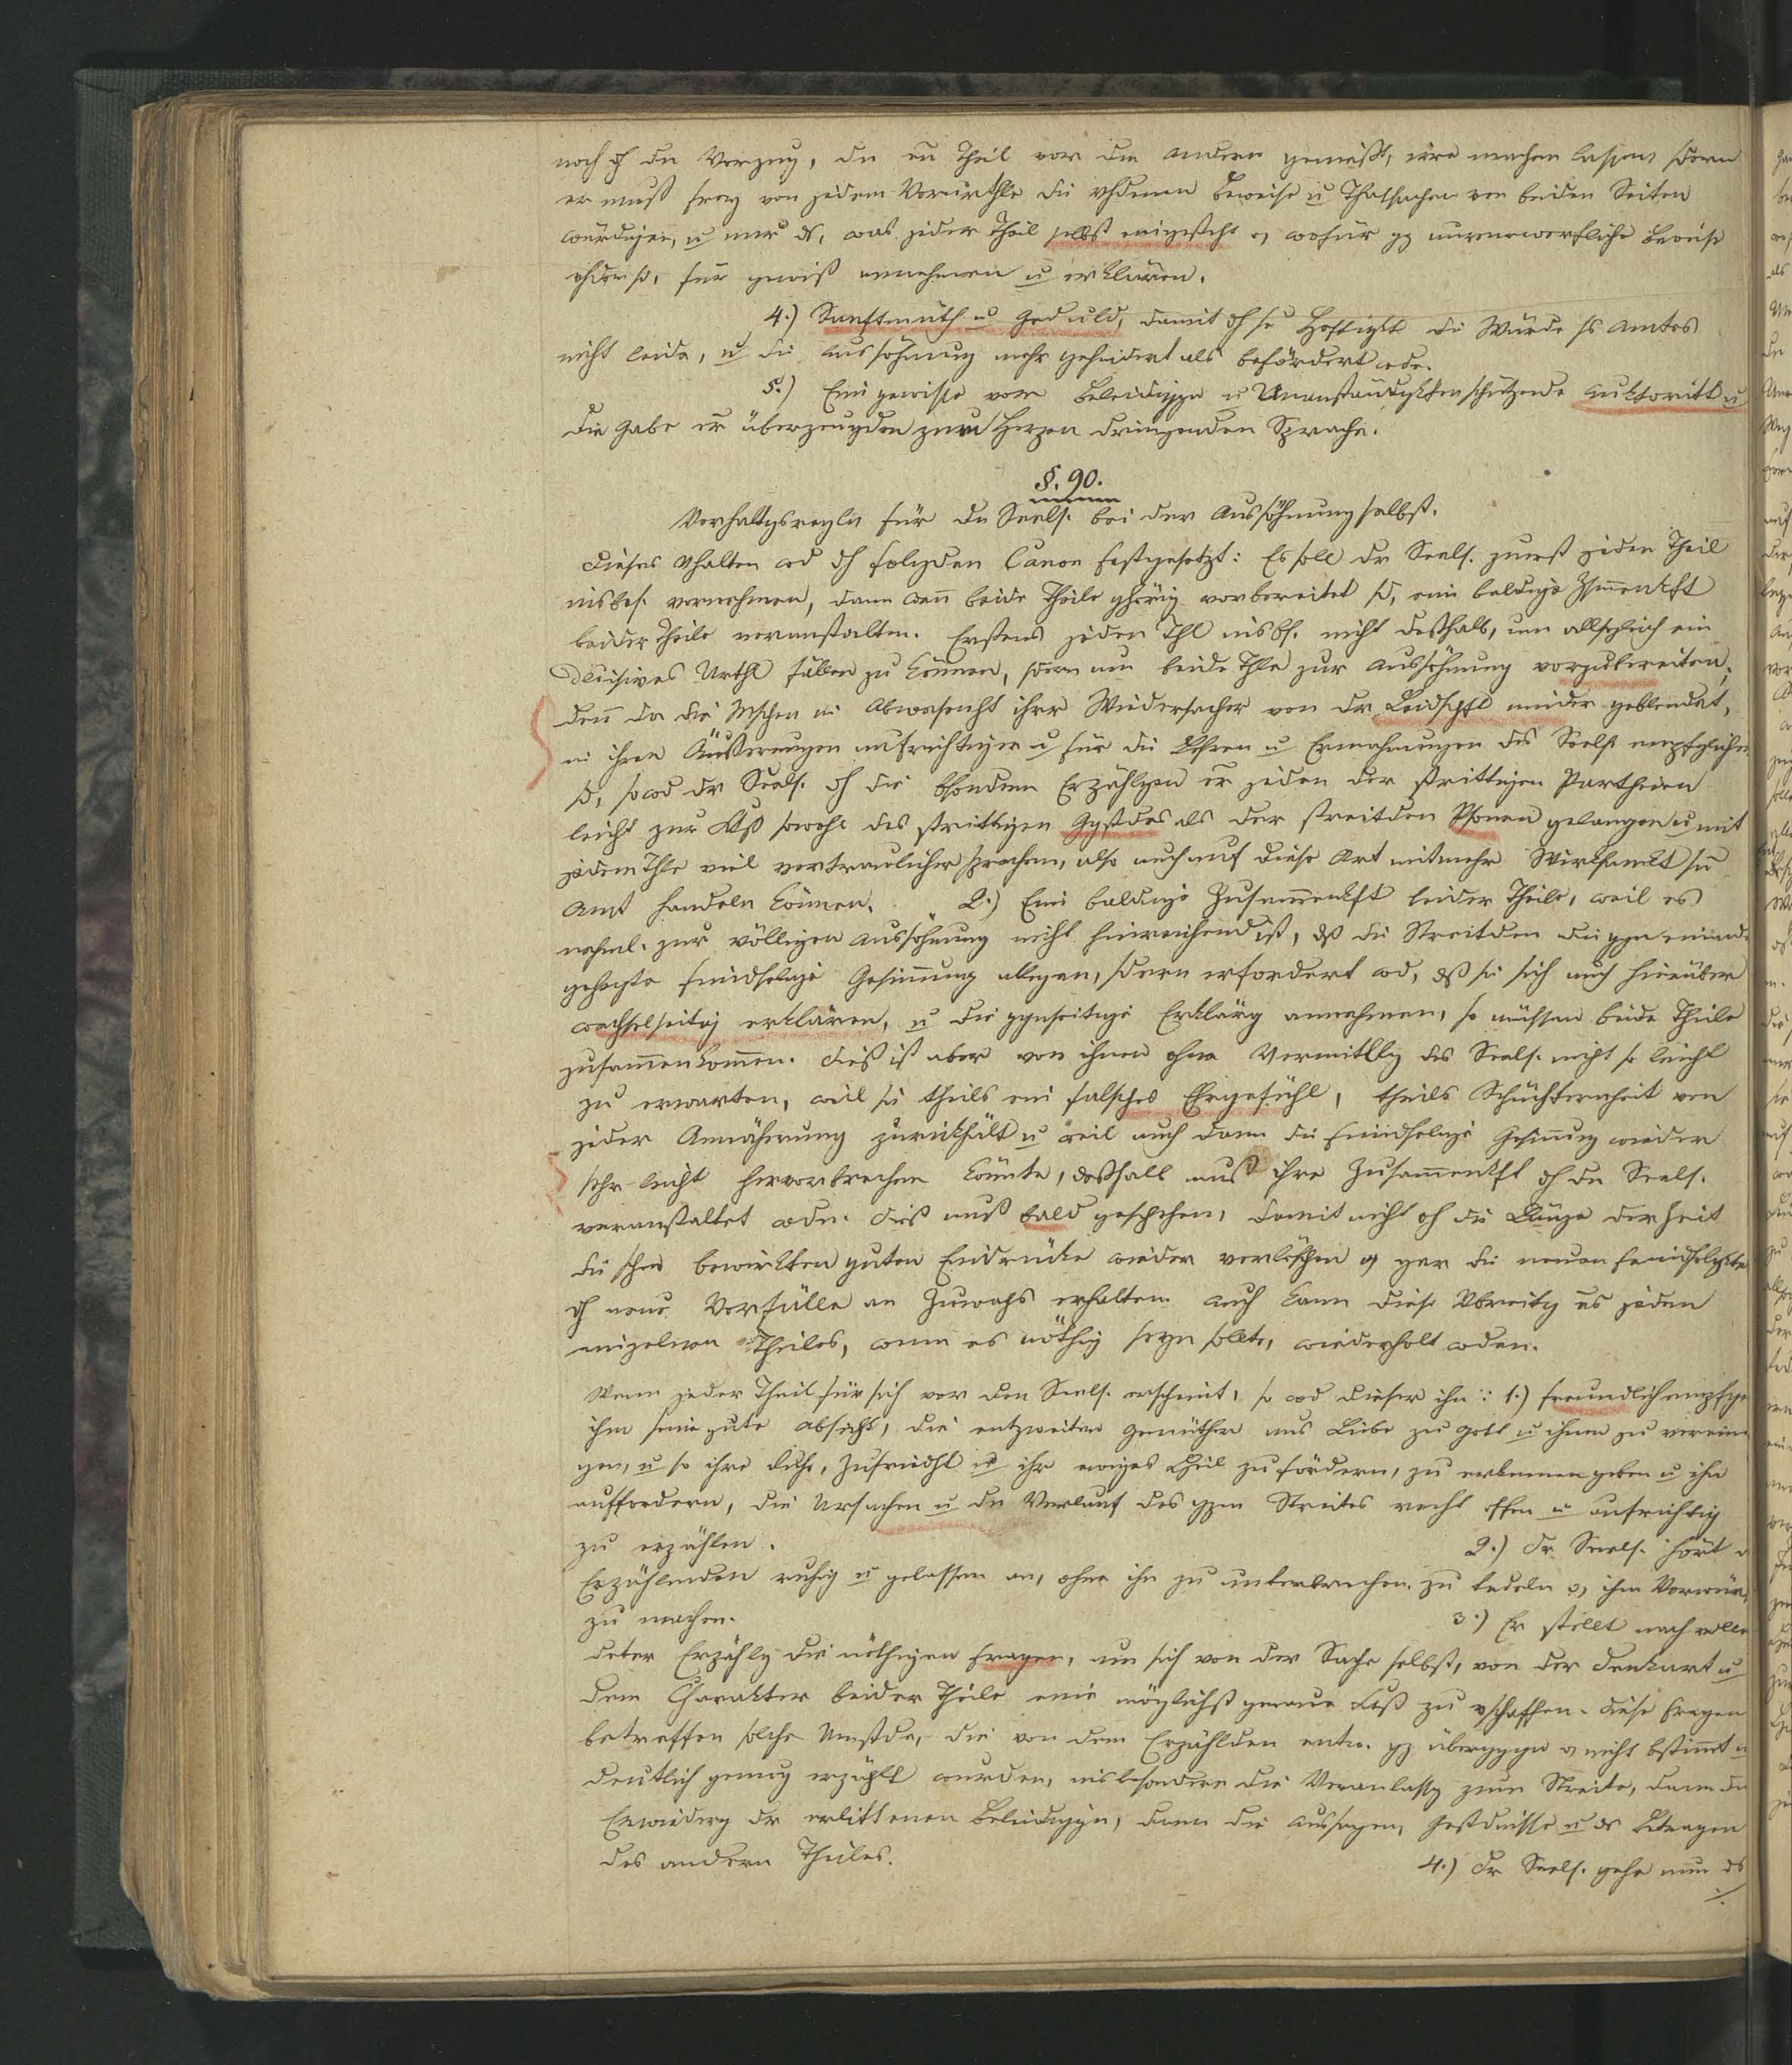 noch dh den Vorzug, den ein Theil vor dem andern genießt, irre machen lassen, sdern
er muß frey von jedem Vorurtheile die vhdenen Beweise u Thatsachen von beiden Seiten
würdigen, u nur ds, was jeder Theil selbst eingesteht od wofür gz unverwerfliche Beweise
vhden sd, für gewiß annehmen u erklären.
4.) Sanftmuth u Geduld, damit dh se Heftigkt die Würde ss Amtes
nicht leide, u die Aussöhnung mehr gehindert als befördert wde.
5.) Eine gewisse vor Beleidiggen u Unanständigkten schützende Auktorität u
die Gabe er überzeugden zum Herzen dringenden Sprache.
§. 90.
Verhaltgsregeln für den Seels. bei der Aussöhnung selbst.
Dieses Vhalten wd dh folgden Canon festgesetzt: Es soll der Seels. zuerst jeden Theil
insbes. vornehmen, dann wenn beide Theile ghörig vorbereitet sd, eine baldige Zsammenkft
beider Theile veranstalten. Erstens jeden Thl insbs. nicht deßhalb, um allsogleich ein
decisives Urthl fällen zu können, sdern um beide Thle zur Aussöhnung vorzubereiten;
denn da die Mschen in Abwesenht ihrer Widersacher von der Leidschft minder geblendet,
in ihren Äußerungen aufrichtiger u für die Lehren u Ermahnungen des Seels. empfglicher
sd, so wd der Seels. dh die bsondern Erzählgen er jeden der strittigen Partheien
leicht zur Ktniß sowohl des strittigen Ggstdes als der streitden Psonen gelangen u mit
jedem Thle viel vertraulicher sprechen, also auch auf diese Art mit mehr Wirksamkt sein
Amt handeln können. 2.) Eine baldige Zusammenkft beider Theile, weil es
nehml. zur völligen Aussöhnung nicht hinreichend ist, dß die Streitden die ggen einander
gehegte feindselige Gesinnung ablegen, sdern erfordert wd, dß sie sich auch hierüber
wechselseitig erklären, u die ggnseitige Erklärg annehmen, so müssen beide Theile
zusammenkommen. Dieß ist aber von ihnen ohne Vermittlg des Seels. nicht so leicht
zu erwarten, weil sie theils ein falsches Ehrgefühl, theils Schüchternheit von
jeder Annäherung zurückhält u weil auch dann die feindselige Gesinnung wieder
sehr leicht hervorbrechen könnte, deßhalb muß ihre Zusammenkft dh den Seels.
veranstaltet wden. Dieß muß bald geschehen, damit nicht dh die Länge der Zeit
die schon bewirkten guten Eindrücke wieder verlöschen od gar die neuen Feindseligkten
dh neue Vorfälle an Zuwachs erhalten. Auch kann diese Vbreitg es jeden
einzelnen Theiles, wenn es nöthig seyn sollte, wiederholt wden.
Wenn jeder Theil für sich vor dem Seels. erscheint, so wd dieser ihn: 1.) freundlich empfge
ihm seine gute Absicht, die entzweiten Gemüther aus Liebe zu Gott u ihnen zu verein
gen, u so ihre Ruhe, Zufriedht u ihr ewiges Heil zu fördern, zu erkennen geben u ihn
auffordern, die Ursachen u den Verlauf des gzen Streites recht offen u aufrichtig
zu erzählen. 2.) Der Seels. hört d
Erzählenden ruhig u gelassen an, ohne ihn zu unterbrechen, zu tadeln od ihm Vorwür
zu machen. 3.) Er stellt nach vollen
deter Erzählg die nöthigen Fragen, um sich von der Sache selbst, von der Denkart u
dem Charakter beider Theile eine möglichst genaue Ktniß zu vschaffen. Diese Fragen
betreffen solche Umstde, die von dem Erzählden entw. gz übergggen od nicht bstimmt u
deutlich genug erzählt wurden, insbesondere die Veranlassg zum Streite, dann die
Erwiederg der erlittenen Beleidiggen, dann die Aussagen, Gestdnisse u ds Btragen
des andern Theiles. 4.) Der Seels. gehe nun ds
./.